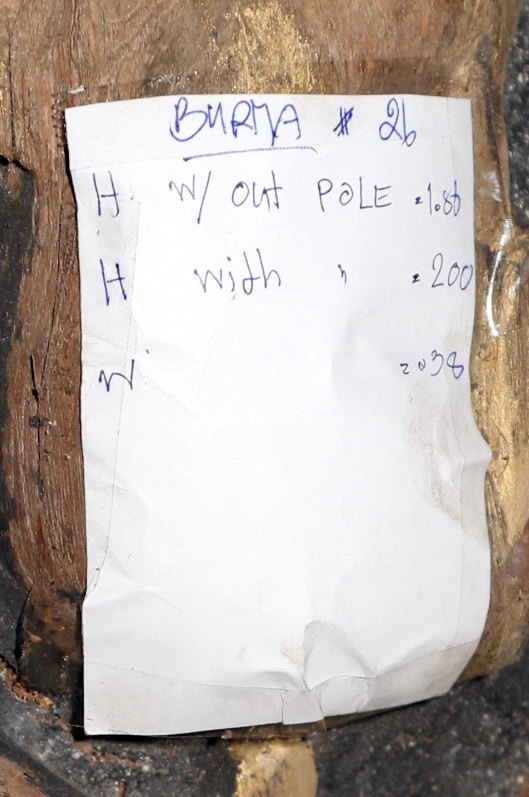 BURMA # 26
H w/ out POLE = 1.80
H with " = 200
W = 038